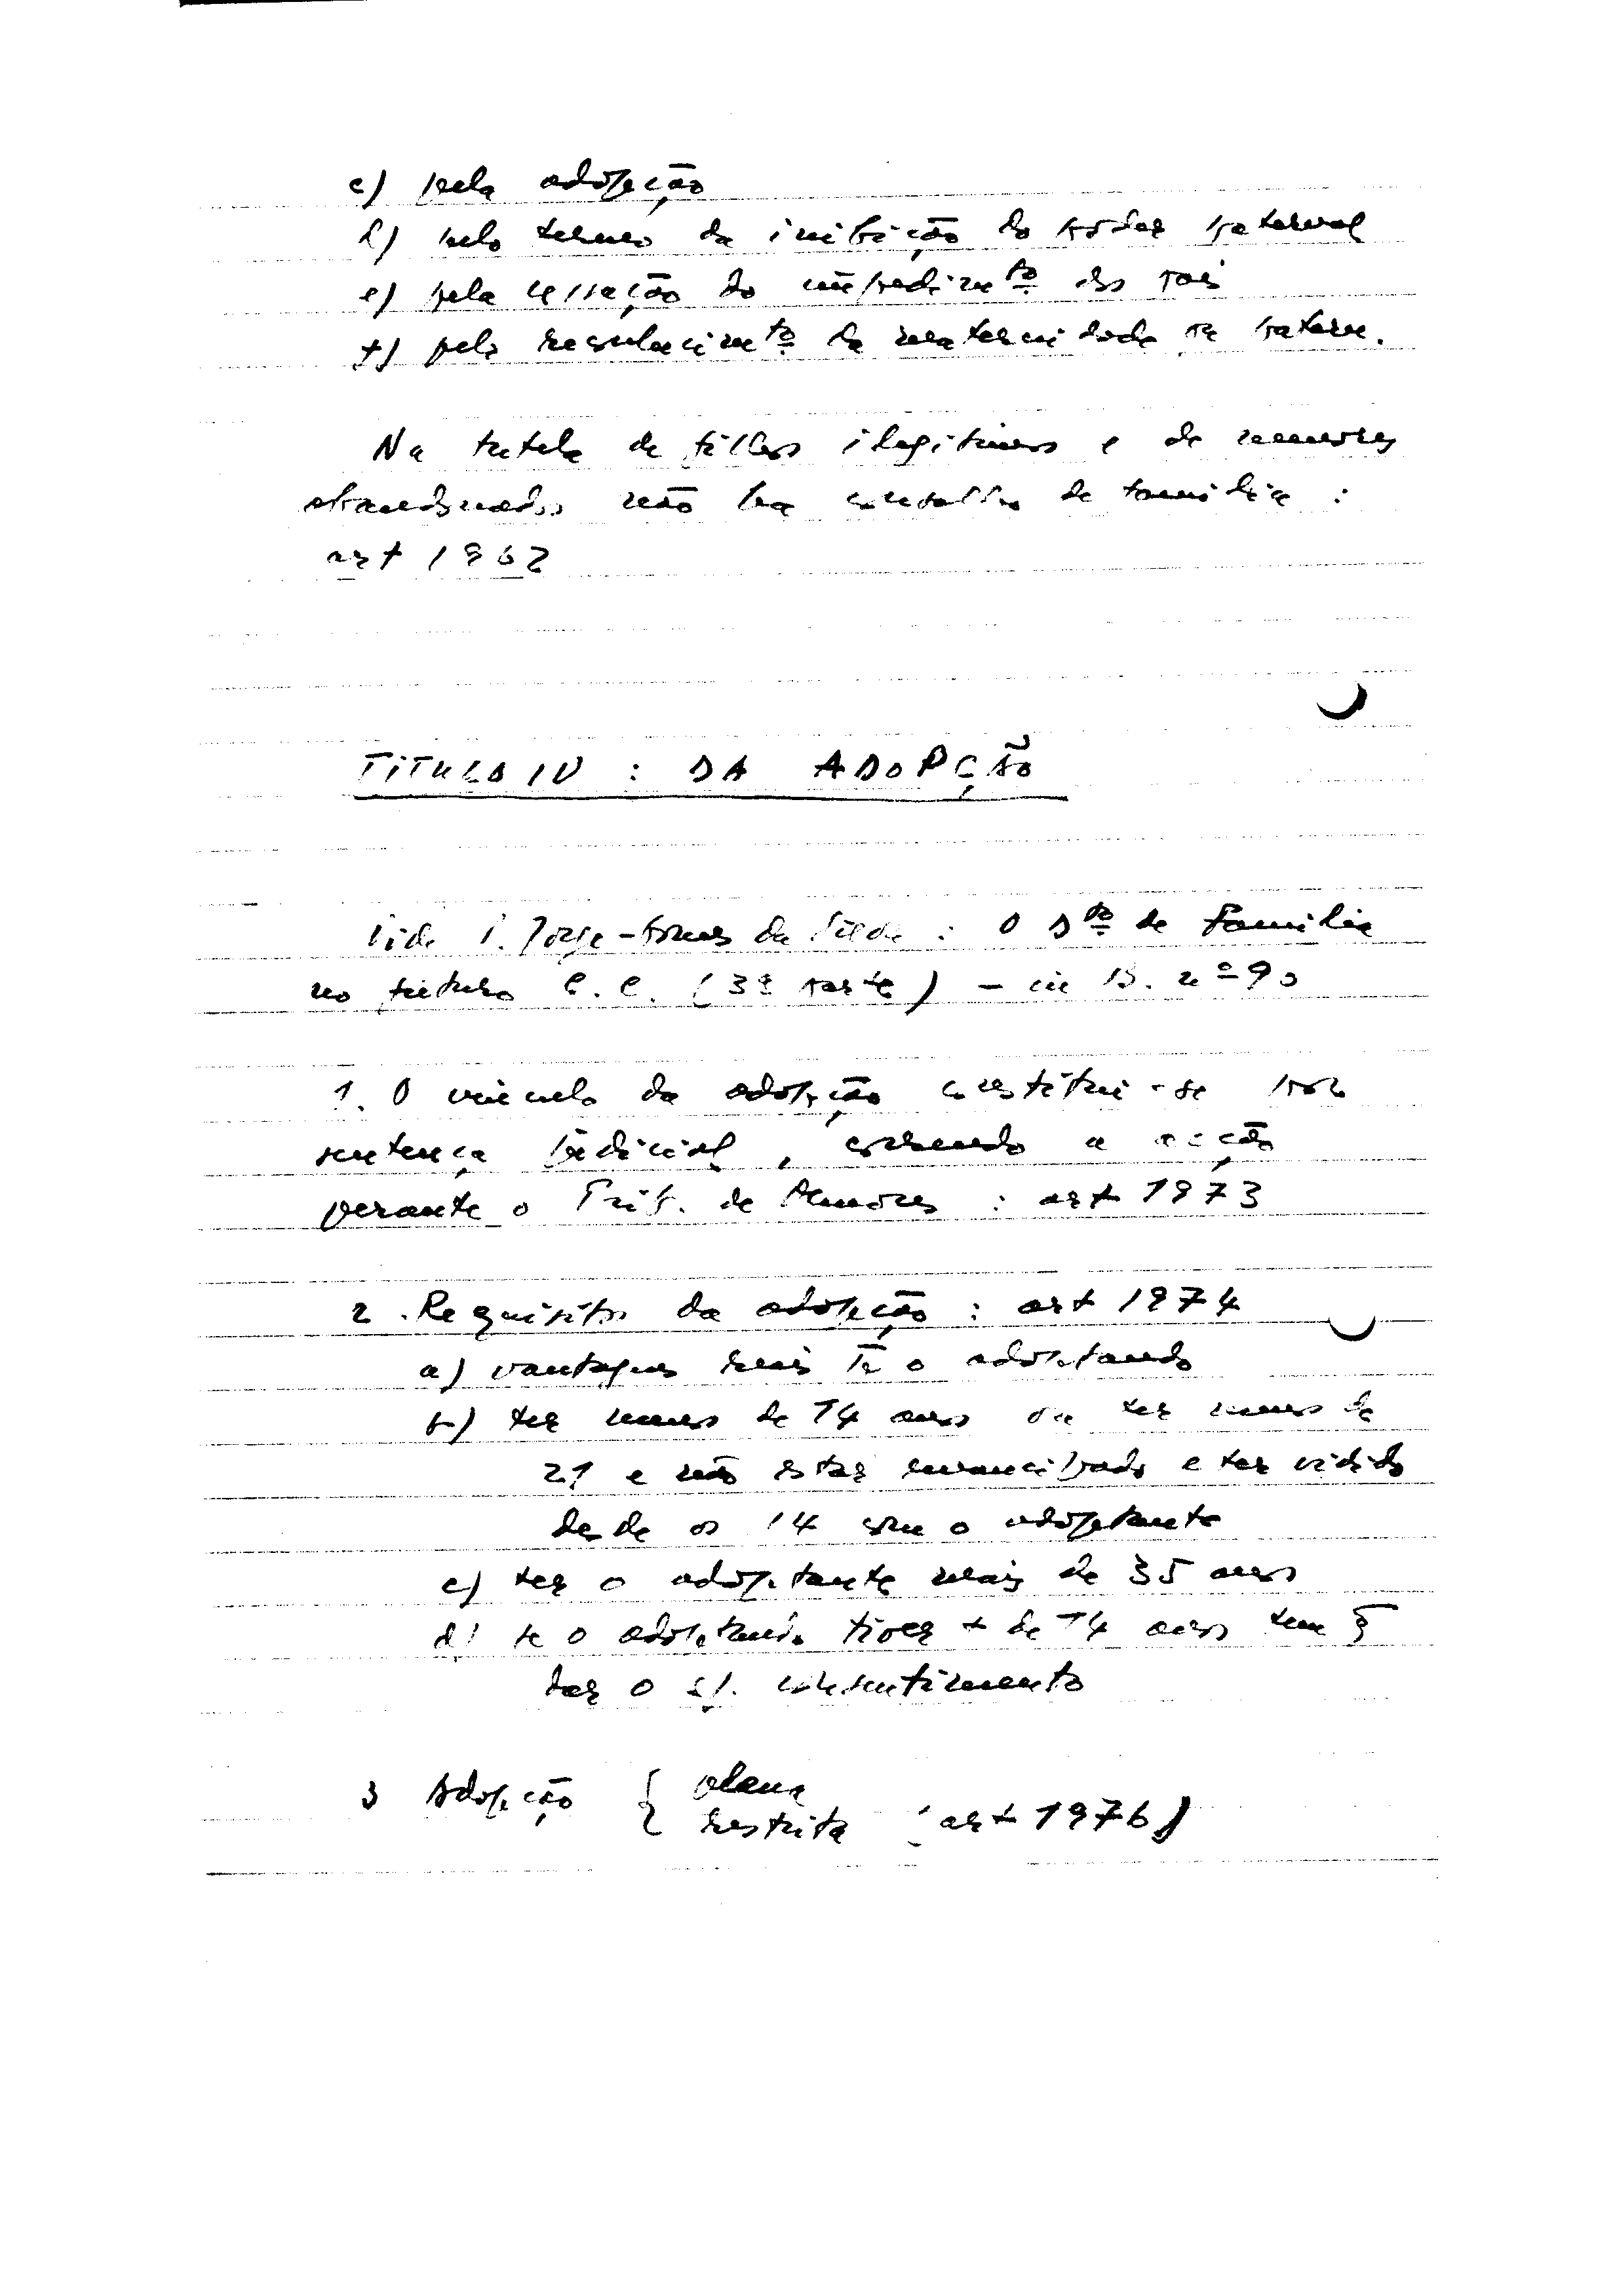 c) pela adopção
d) pelo termo da inibição do poder paternal
e) pela cessação do impedimtº dos pais
f) pelo reconhecimtº da maternidade ou patern.
Na tutela de filhos ilegítimos e de menores
abandonados não há conselho de família :
art 1962
TÍTULO IV : DA ADOPÇÃO
Vide P. Jorge - Gomes da Silva : O Dtº de Família
no futuro C. C. (3ª parte) - in B. nº 90
1. O vínculo da adopção constitui-se por
sentença judicial, correndo a acção
perante o Trib. de Menores : art 1973
2. Requisitos da adopção : art 1974
a) vantagens reais pª o adoptando
b) ter menos de 14 anos ou ter menos de
21 e não estar emancipado e ter vivido
desde os 14 com o adoptante
c) ter o adoptante mais de 35 anos
d) se o adoptando tiver + de 14 anos tem q
dar o s/. consentimento
3 Adopção { plena
restrita (art 1976)